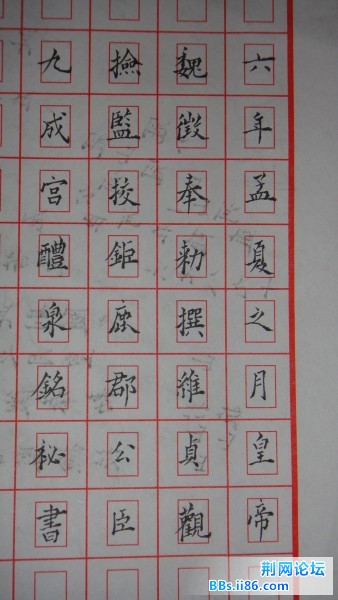 九成宫醴泉銘祕書
撿監挍鉅鹿郡公臣
魏徵奉勅撰維貞觀
六年孟夏之月皇帝
荆网论坛
BBs.ii86.com